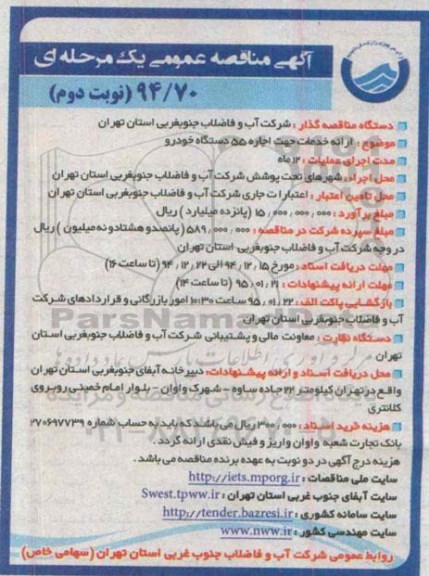 آگهی مناقصه عمومی یک مرحله ای
۹۴/۷۰ (نوبت دوم)
دستگاه مناقصه گذار : شرکت آب و فاضلاب جنوبغربی استان تهران
موضوع : ارائه خدمات جهت اجاره ۵۵ دستگاه خودرو
مدت اجرای عملیات : ۱۲ ماه
محل اجراء : شهرهای تحت پوشش شرکت آب و فاضلاب جنوبغربی استان تهران
محل تامین اعتبار : اعتبارات جاری شرکت آب و فاضلاب جنوبغربی استان تهران
مبلغ برآورد : ۱۵,۰۰۰,۰۰۰,۰۰۰ (پانزده میلیارد ) ریال
مبلغ سپرده شرکت در مناقصه : ۵۸۹,۰۰۰,۰۰۰ ( پانصدو هشتادو نه میلیون ) ریال
در وجه شرکت آب و فاضلاب جنوبغربی استان تهران
مهلت دریافت اسناد : مورخ ۹۴,۱۲,۱۵ الی ۹۴,۱۲,۲۲ (تا ساعت ۱۶)
مهلت ارائه پیشنهادات : ۹۵,۰۱,۲۱ (تا ساعت ۱۴)
بازگشایی پاکت الف : ۹۵,۰۱,۲۲ ساعت ۱۰:۳۰ امور بازرگانی و قراردادهای شرکت
آب و فاضلاب جنوبغربی استان تهران
دستگاه نظارت : معاونت مالی و پشتیبانی شرکت آب و فاضلاب جنوبغربی استان
تهران
محل دریافت اسناد و ارائه پیشنهادات: دبیرخانه آبفای جنوبغربی استان تهران
واقع در تهران کیلومتر ۲۲ جاده ساوه - شهرک واوان - بلوار امام خمینی روبروی
کلانتری
هزینه خرید اسناد : ۳۰۰,۰۰۰ ریال می باشد که باید به حساب شماره ۲۷۰۶۹۷۷۳۹
بانک تجارت شعبه واوان واریز و فیش نقدی ارائه گردد .
هزینه درج آگهی در دو نوبت به عهده برنده مناقصه می باشد .
سایت ملی مناقصات : http://iets.mporg.ir
سایت آبفای جنوب غربی استان تهران : Swest.tpww.ir
سایت سامانه کشوری : http://tender.bazresi.ir
سایت مهندسی کشور : www.nww.ir
روابط عمومی شرکت آب و فاضلاب جنوب غربی استان تهران (سهامی خاص)